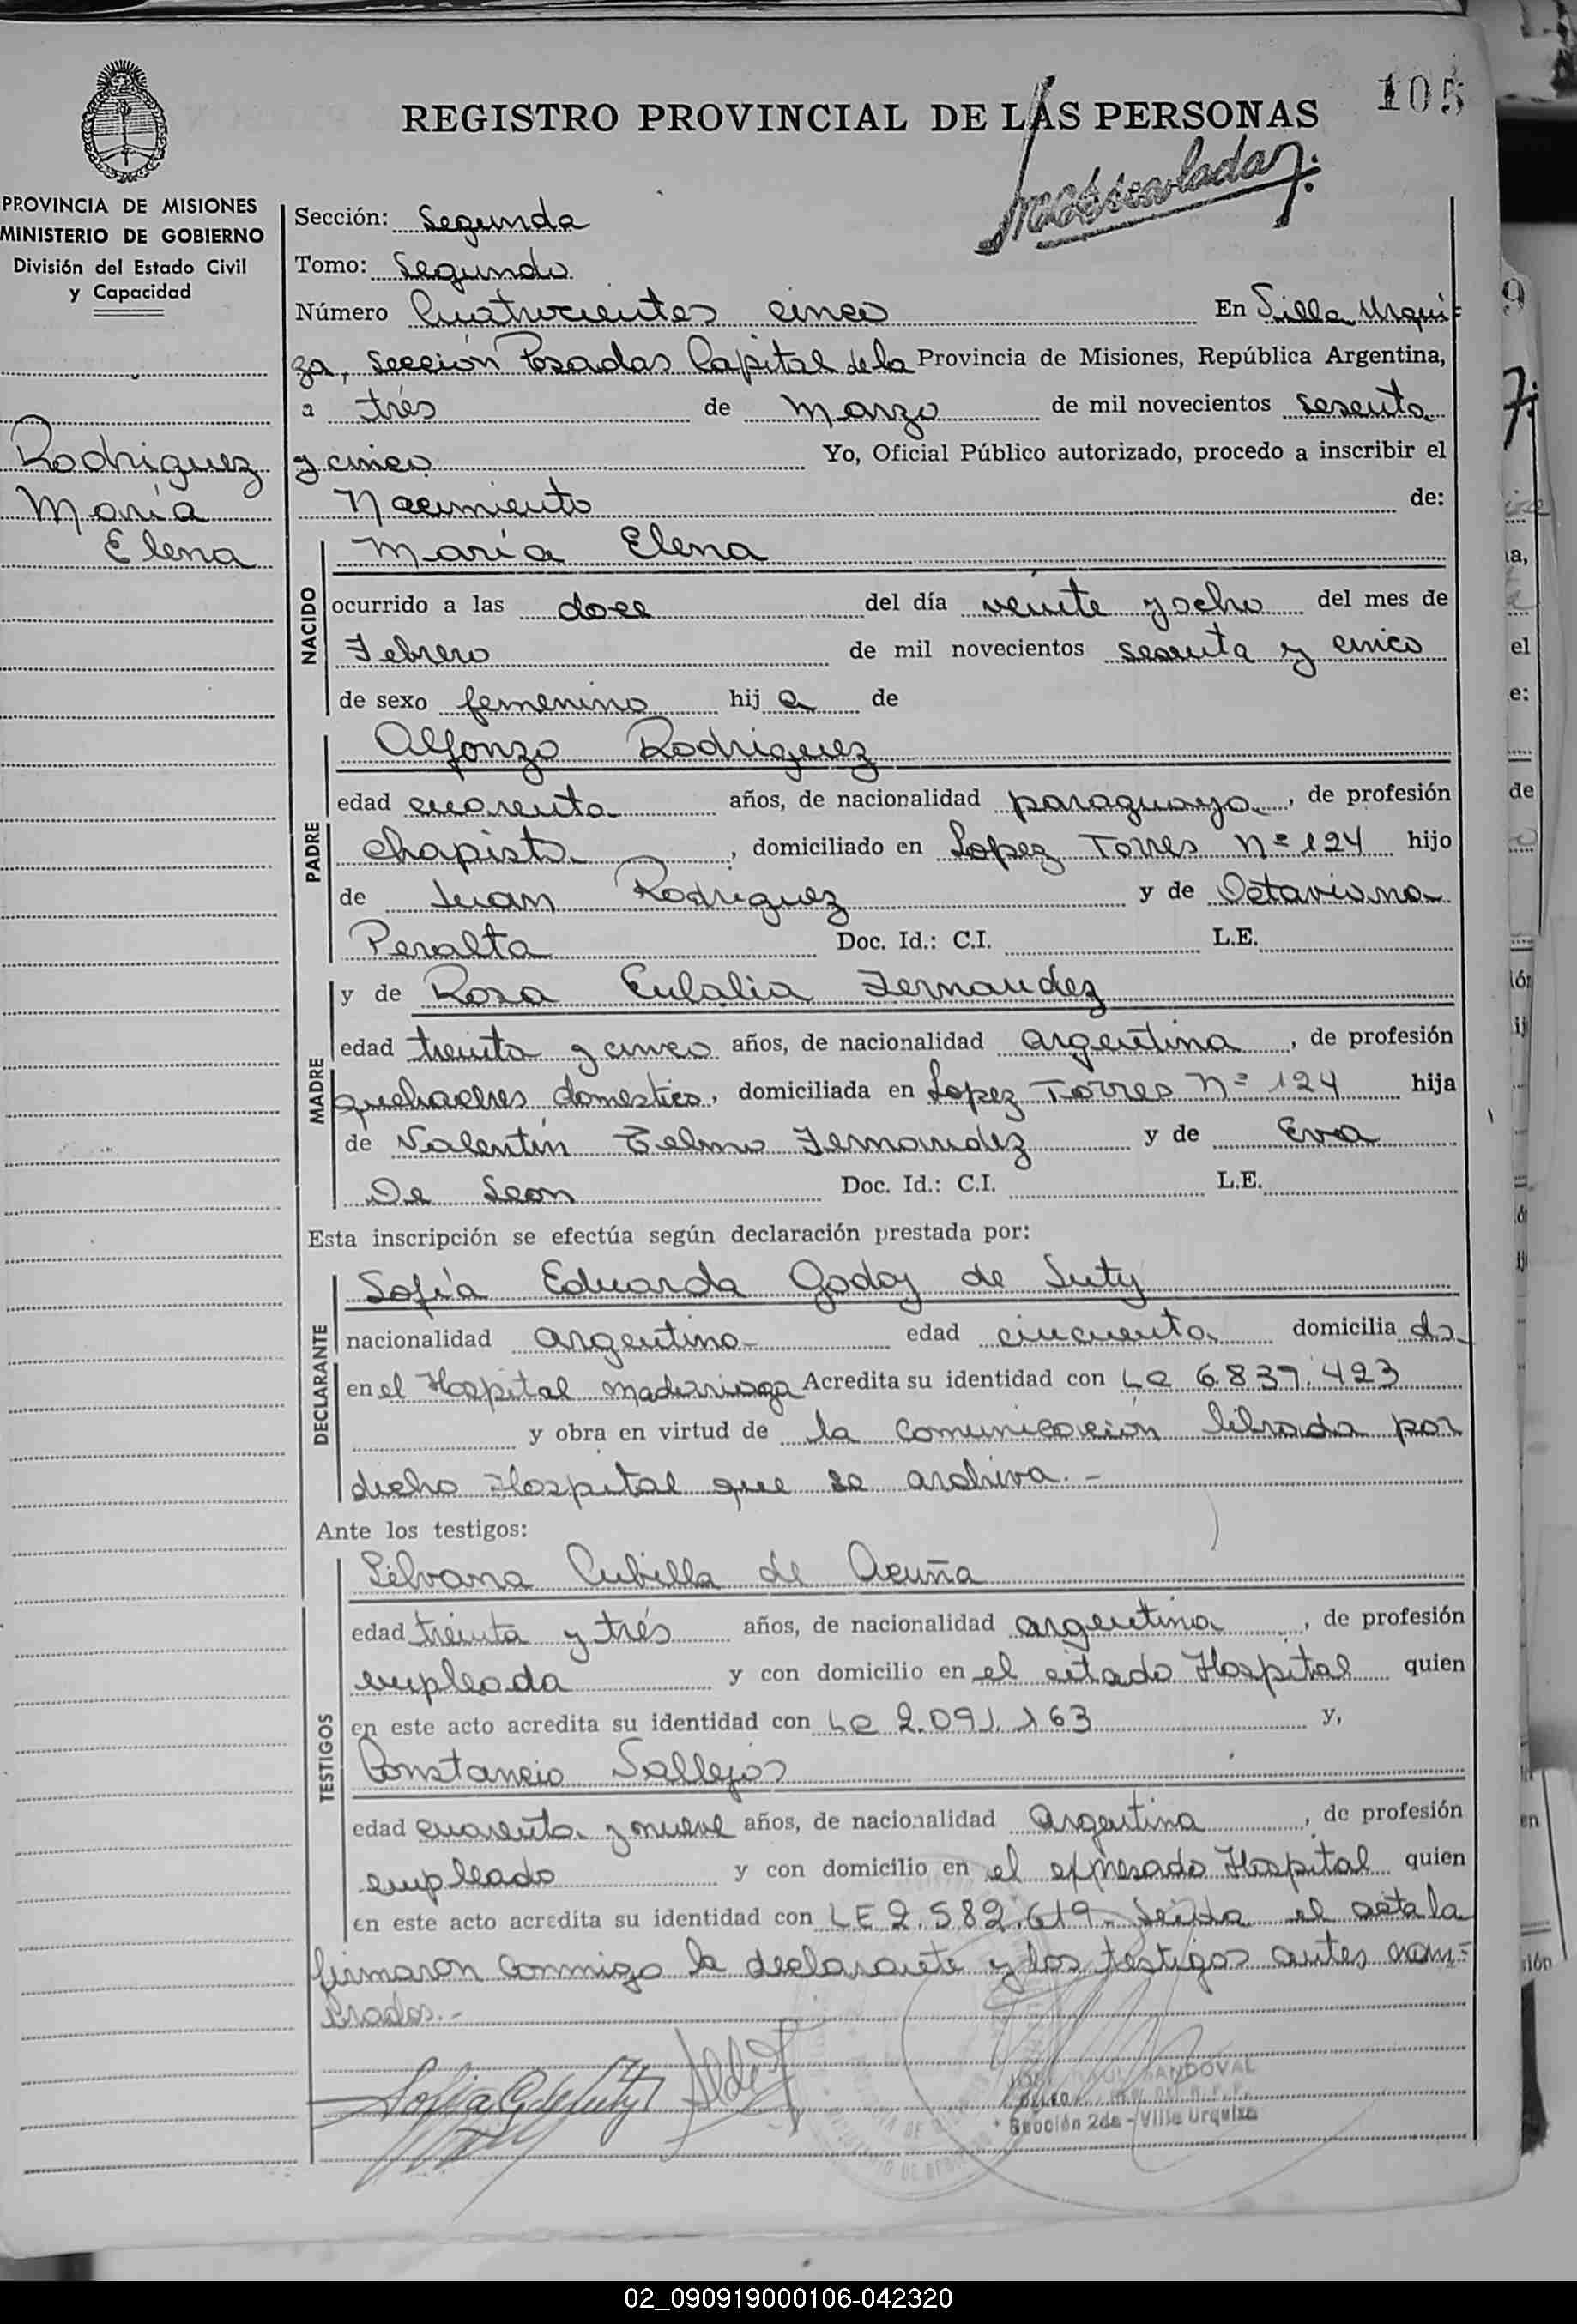 105
REGISTRO PROVINCIAL DE LAS PERSONAS
PROVINCIA DE MISIONES
MINISTERIO DE GOBIERNO
División del Estado Civil
y Capacidad
Rodriguez
María
Elena
Sección: Segunda
Tomo: Segundo
Número Cuatrocientos cinco En Villa Urqui=
za, Sección Posadas Capital de la Provincia de Misiones, República Argentina,
a tres de Marzo de mil novecientos sesenta
y cinco Yo, Oficial Público autorizado, procedo a inscribir el
Nacimiento de:
NACIDO
María Elena
ocurrido a las doce del día veinte y ocho del mes de
Febrero de mil novecientos sesenta y cinco
de sexo femenino hij a de
PADRE
Alfonzo Rodriguez
edad cuarenta años, de nacionalidad paraguaya, de profesión
chapista, domiciliado en Lopez Torres Nº 124 hijo
de Juan Rodriguez y de Octaviana
Peralta Doc. Id.: C.I. L.E.
MADRE
y de Rosa Eulalia Fernandez
edad treinta y cinco años, de nacionalidad argentina, de profesión
quehaceres domestico, domiciliada en Lopez Torres Nº 124 hija
de Valentín Telmo Fernandez y de Eva
De Leon Doc. Id.: C.I. L.E.
Esta inscripción se efectúa según declaración prestada por:
DECLARANTE
Sofía Eduarda Godoy de Suty
nacionalidad argentina edad cincuenta domicilia da
en el Hospital Madariaga Acredita su identidad con LC 6.837.423
y obra en virtud de la comunicación librada por
dicho Hospital que se archiva.-
Ante los testigos:
TESTIGOS
Silvana Cubilla de Acuña
edad treinta y trés años, de nacionalidad argentina, de profesión
empleada y con domicilio en el citado Hospital quien
en este acto acredita su identidad con LC 2.091.163 y,
Constancio Vallejos
edad cuarenta y nueve años, de nacionalidad argentina, de profesión
empleado y con domicilio en el expresado Hospital quien
en este acto acredita su identidad con LE 2.582.619. Leida el acta la
firmaron conmigo la declarante y los testigos antes nom=
brados.-
SANDOVAL
Sección 2da - Villa Urquiza
02_090919000106-042320